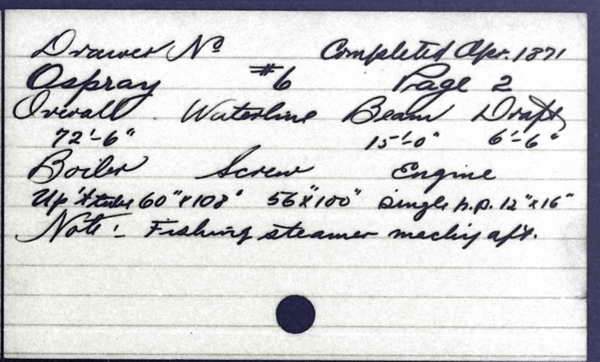 Drawer No Completed Apr. 1871
Ospray #6 Page 2
Overall Waterline Beam Draft
72'-6" 15'-0" 6'-6"
Boiler Screw Engine
Up't tube 60"x108" 56"x100" Single h.p. 12"x16"
Note:- Fishing steamer machy aft.